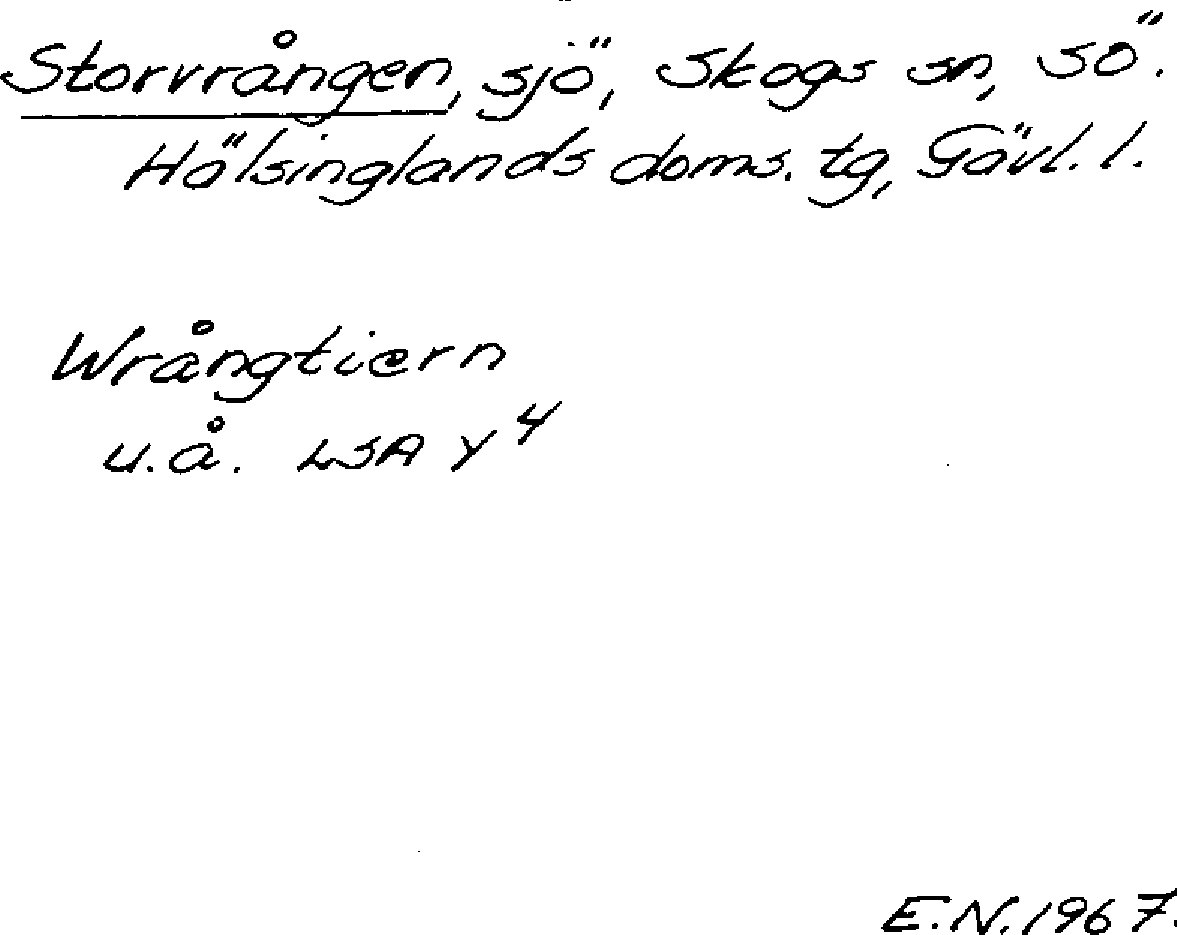 Storvrången, sjö, Skogs sn, Sö.
Hälsinglands doms. tg, Gävl. l.
Wrångtiern
u.å. LSA Y⁴
E.N. 1967.